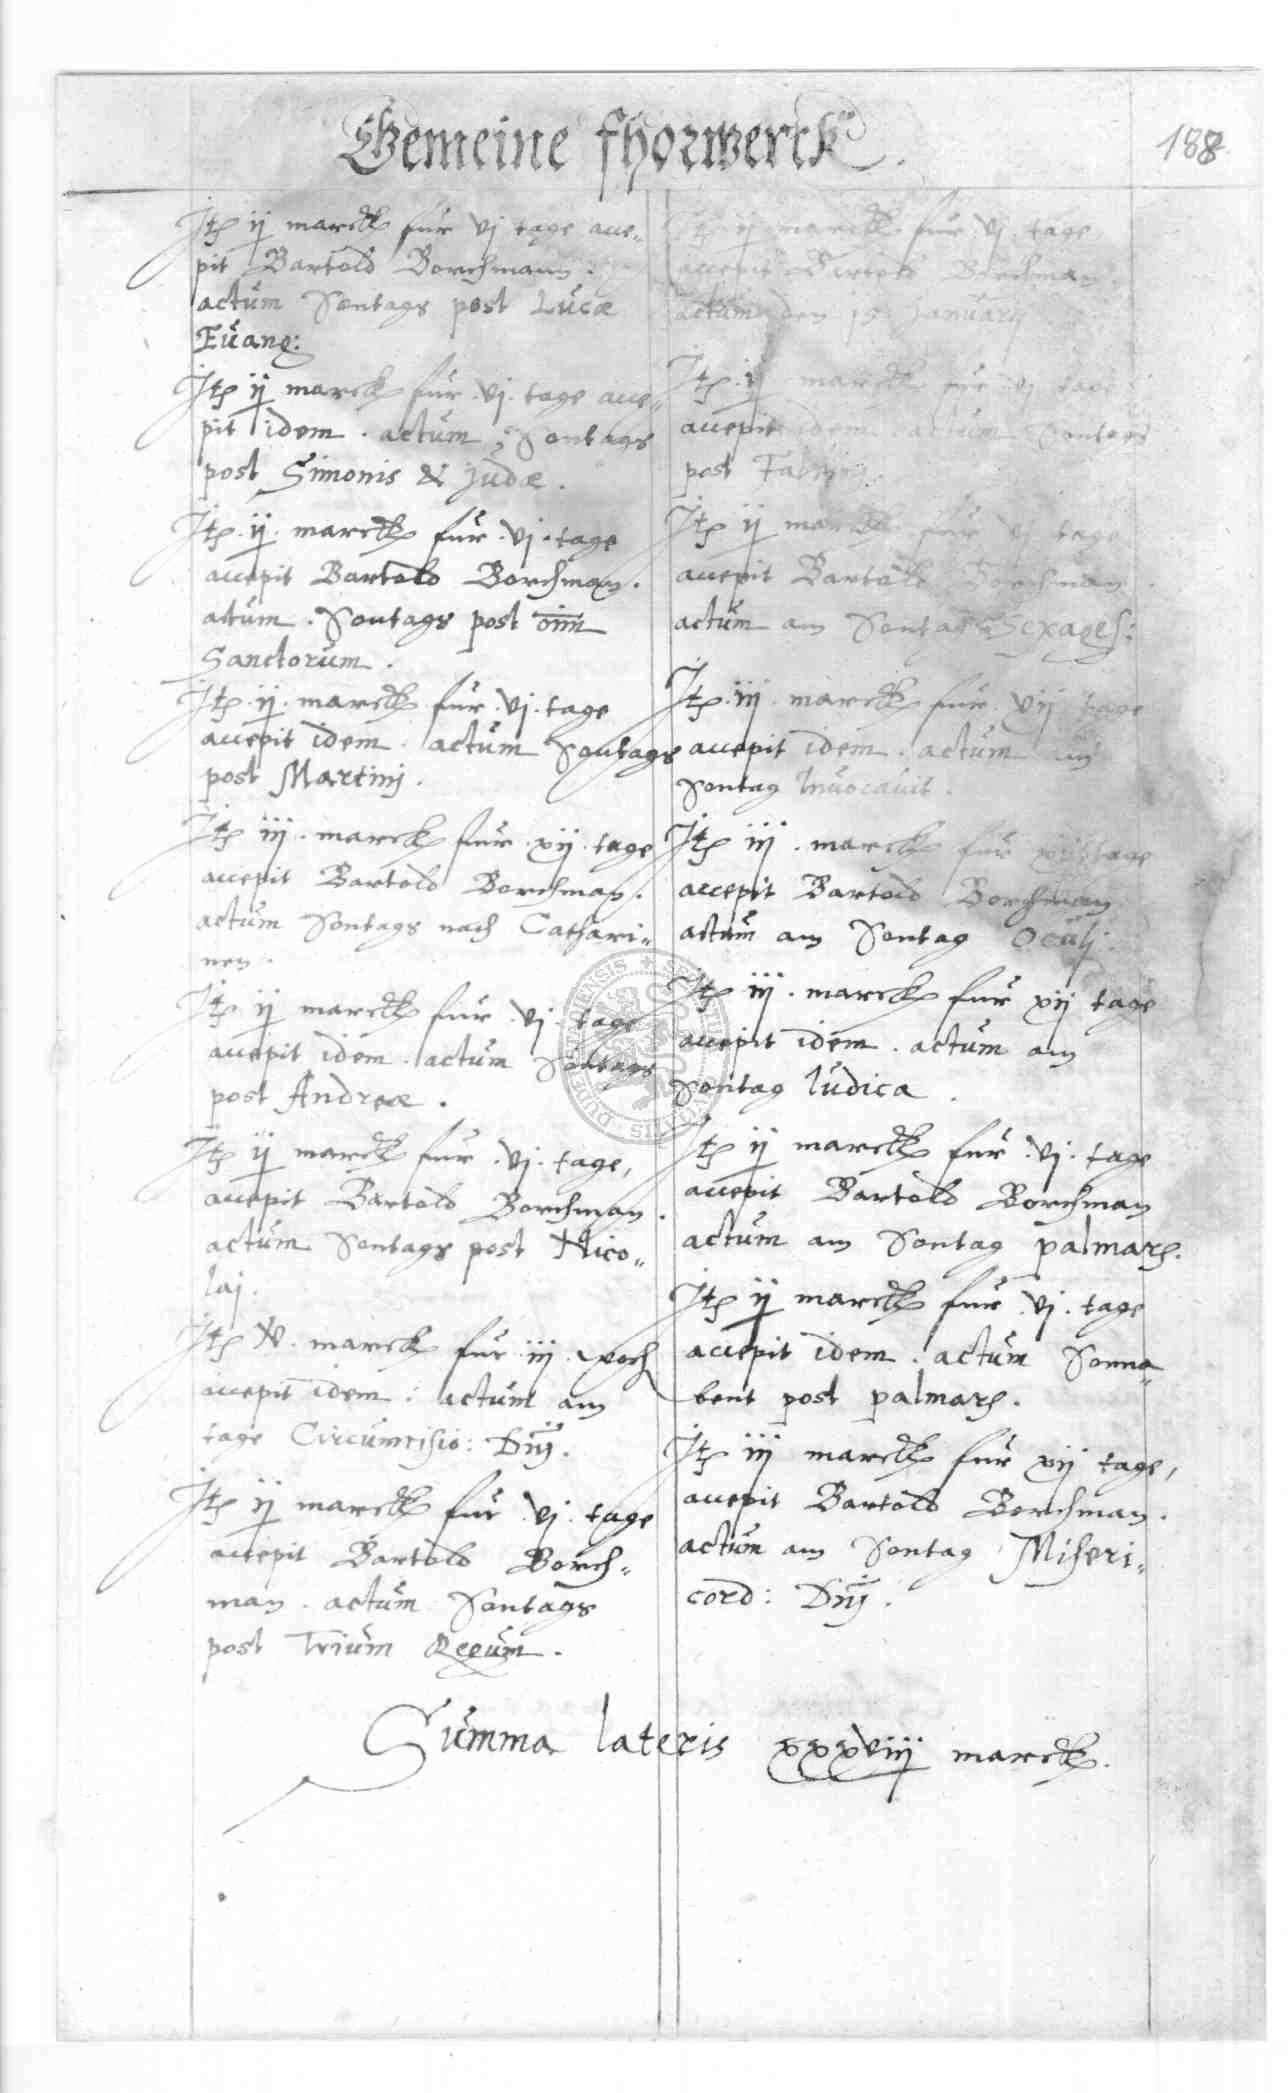 Gemeine fhorwerck.
188
Itē ij marck fur vj tage acce„
pit Bartold Borchmann.
actum Sontags post Lucæ
Evang:
Itē ij marck fur .vj. tage acce„
pit idem . actum Sontags
post Simonis & Judæ .
Itē .ij. marck fur .vj. tage
accepit Bartold Borchman.
actum . Sontags post oīm
Sanctorum .
Itē .ij. marck fur .vj. tage
accepit idem . actum Sontags
post Martinj .
Itē iij . marck fur .xij . tage
accepit Bartold Borchman.
actum Sontags nach Cathari„
nen .
Itē ij marck fur .vj . tage
accepit idem . actum Sontags
post Andreæ .
Itē ij marck fur .vj. tage,
accepit Bartold Borchman .
actum Sontags post Nico„
laj .
Itē marck fur iij woch
accepit idem : actum am
tage Circumcisio: Dnj .
Itē ij marck fur .vj . tage
accepit Bartold Borch„
man . actum Sontags
post Trium Regum .
Itē ij marck fur .vj. tage
accepit Bartold Borchman
actum den Januarij
Itē ij marck fur vj tage
accepit idem actum Sontags
post
Itē ij marck fur vj tage
accepit Bartold Borchman .
actum am Sontag Sexages:
Itē .iij . marck fur tage
accepit idem . actum am
Sontag Invocavit .
Itē iij . marck fur xij tage
accepit Bartold Borchman
actum am Sontag Oculj .
Itē iij . marck fur xij tage
accepit idem . actum am
Sontag Iudica .
Itē ij marck fur .vj. tage
accepit Bartold Borchman
actum am Sontag palmarū.
Itē ij marck fur .vj. tage
accepit idem . actum Sonna„
bent post palmarū.
Itē iij marck fur xij tage,
accepit Bartold Borchman .
actum am Sontag Miseri„
cord: Dnj .
Summa lateris xxxviij marck.